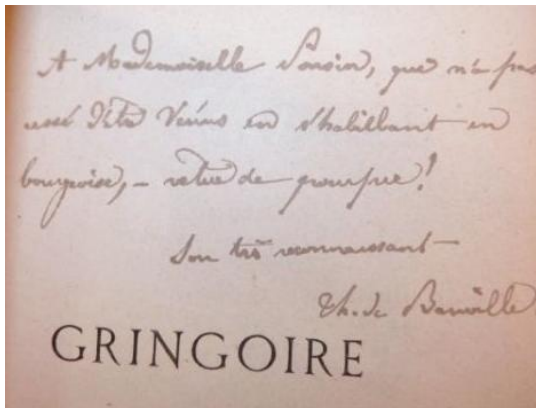 A Mademoiselle Ponsin, que n'a pas
cessé d'être Vénus en s'habillant en
bourgeoise, – vêtue de pourpre!
Son très reconnaissant
Th. de Banville
GRINGOIRE